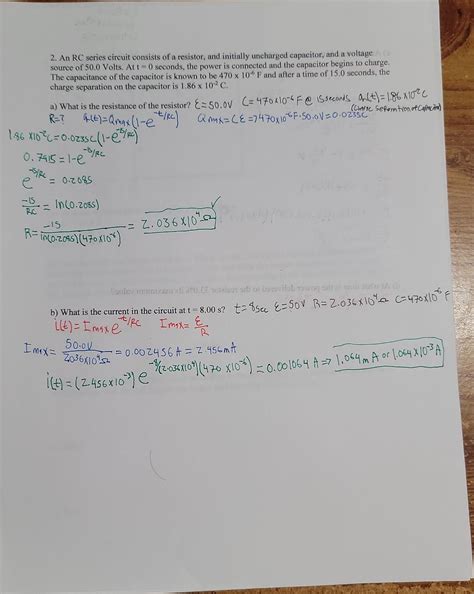 2. An RC series circuit consists of a resistor, and initially uncharged capacitor, and a voltage
source of 50.0 Volts. At t = 0 seconds, the power is connected and the capacitor begins to charge.
The capacitance of the capacitor is known to be 470 x 10⁻⁶ F and after a time of 15.0 seconds, the
charge separation on the capacitor is 1.86 x 10⁻² C.
a) What is the resistance of the resistor? ε=50.0V C=470x10⁻⁶F @ 15seconds q(t)=1.86x10⁻²C
(Charge Separation of Capacitor)
R=? q(t)=Qmax(1-e^-t/RC) Qmax=Cε=>470x10⁻⁶F·50.0V=0.0235C
1.86x10⁻²C=0.0235C(1-e^-15/RC)
0.7915=1-e^-15/RC
e^-15/RC = 0.2085
-15/RC = ln(0.2085)
R= -15/ln(0.2085)(470x10⁻⁶) = 2.036x10⁴Ω ✓
b) What is the current in the circuit at t = 8.00 s? t=8sec ε=50V R=2.036x10⁴Ω C=470x10⁻⁶F
i(t)=Imax e^-t/RC Imax=ε/R
Imax= 50.0V/2.036x10⁴Ω =0.002456A=2.456mA
i(t)=(2.456x10⁻³)e^-8/(2.036x10⁴)(470x10⁻⁶)=0.001064A=>1.064mA or 1.064x10⁻³A